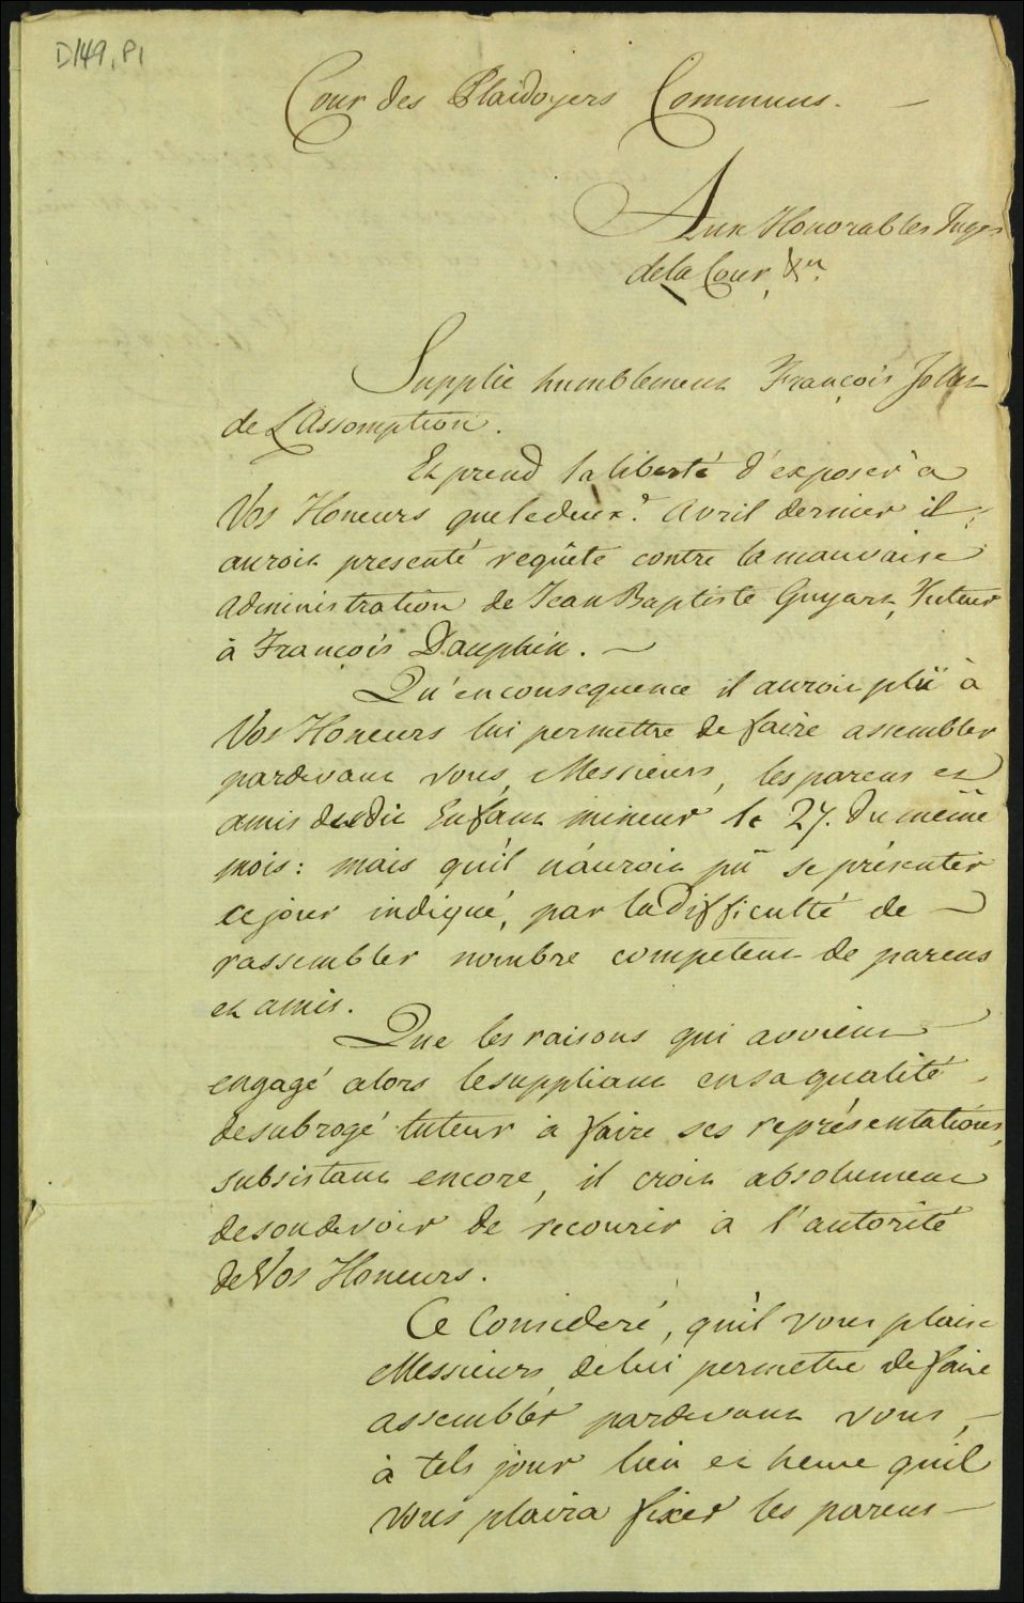 D149, P1
Cour des Plaidoyers Communs. —
Aux Honorables Juges
de la Cour, &a.
Supplie humblement François Jollet
de L'Assomption.
Et prend la liberté d'exposer a
Vos Honeurs que le deux. Avril dernier il
auroit presenté requête contre la mauvaise
administration de Jean Baptiste Guyart, Tuteur
à François Dauphin. —
Qu'en consequence il auroit plû à
Vos Honeurs lui permettre de faire assembler
pardevant vous, Messieurs, les parens et
amis dudit Enfant mineur le 27. du même
mois: mais qu'il n'auroit pû se présenter
ce jour indiqué, par la difficulté de —
rassembler nombre competent de parens
et amis.
Que les raisons qui avoient
engagé alors le suppliant en sa qualité
de subrogé tuteur a faire ses représentations,
subsistant encore, il croit absolument
de son devoir de recourir a l'autorité
de Vos Honeurs.
Ce Consideré, qu'il vous plaise
Messieurs, de lui permettre de faire
assembler pardevant vous, —
à tels jour lieu et heure qu'il
vous plaira fixer les parens —